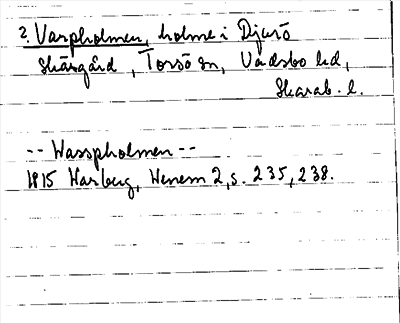 2. Varpholmen, holme i Djurö
skärgård, Torsö sn, Vadsbo hd,
Skarab. l.
-- Wasspholmen --
1815 Warberg, Wenern 2, s. 235, 238.